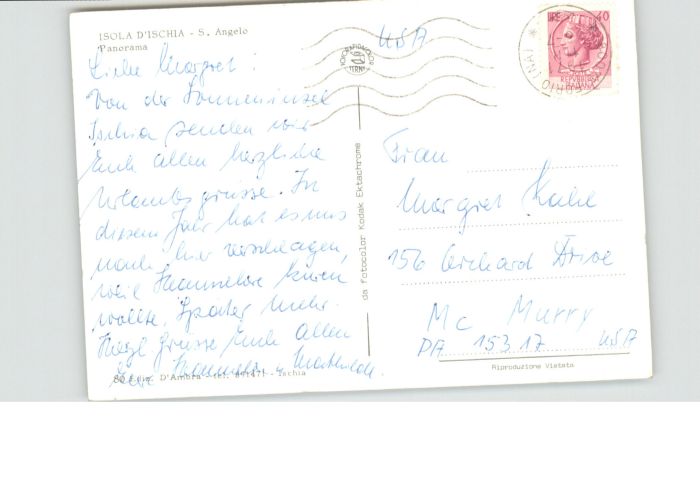 ISOLA D'ISCHIA - S. Angelo
Panorama
USA
Liebe Margret!
Von der Sonneninsel
Ischia senden wir
Euch allen herzliche
Urlaubsgrüsse. In
diesem Jahr hat es uns
nach hier verschlagen,
weil Hannelore kuren
wollte. Später mehr.
Herzl Grüsse Euch allen
Eure Hannelore u. Mathilde.
D'Ambra - tel. 991471 - Ischia
da fotocolor Kodak Ektachrome
LIRE 40
Frau
Margret
156 Orchard Drive
Mc Murry
PA 15317 USA
Riproduzione Vietata